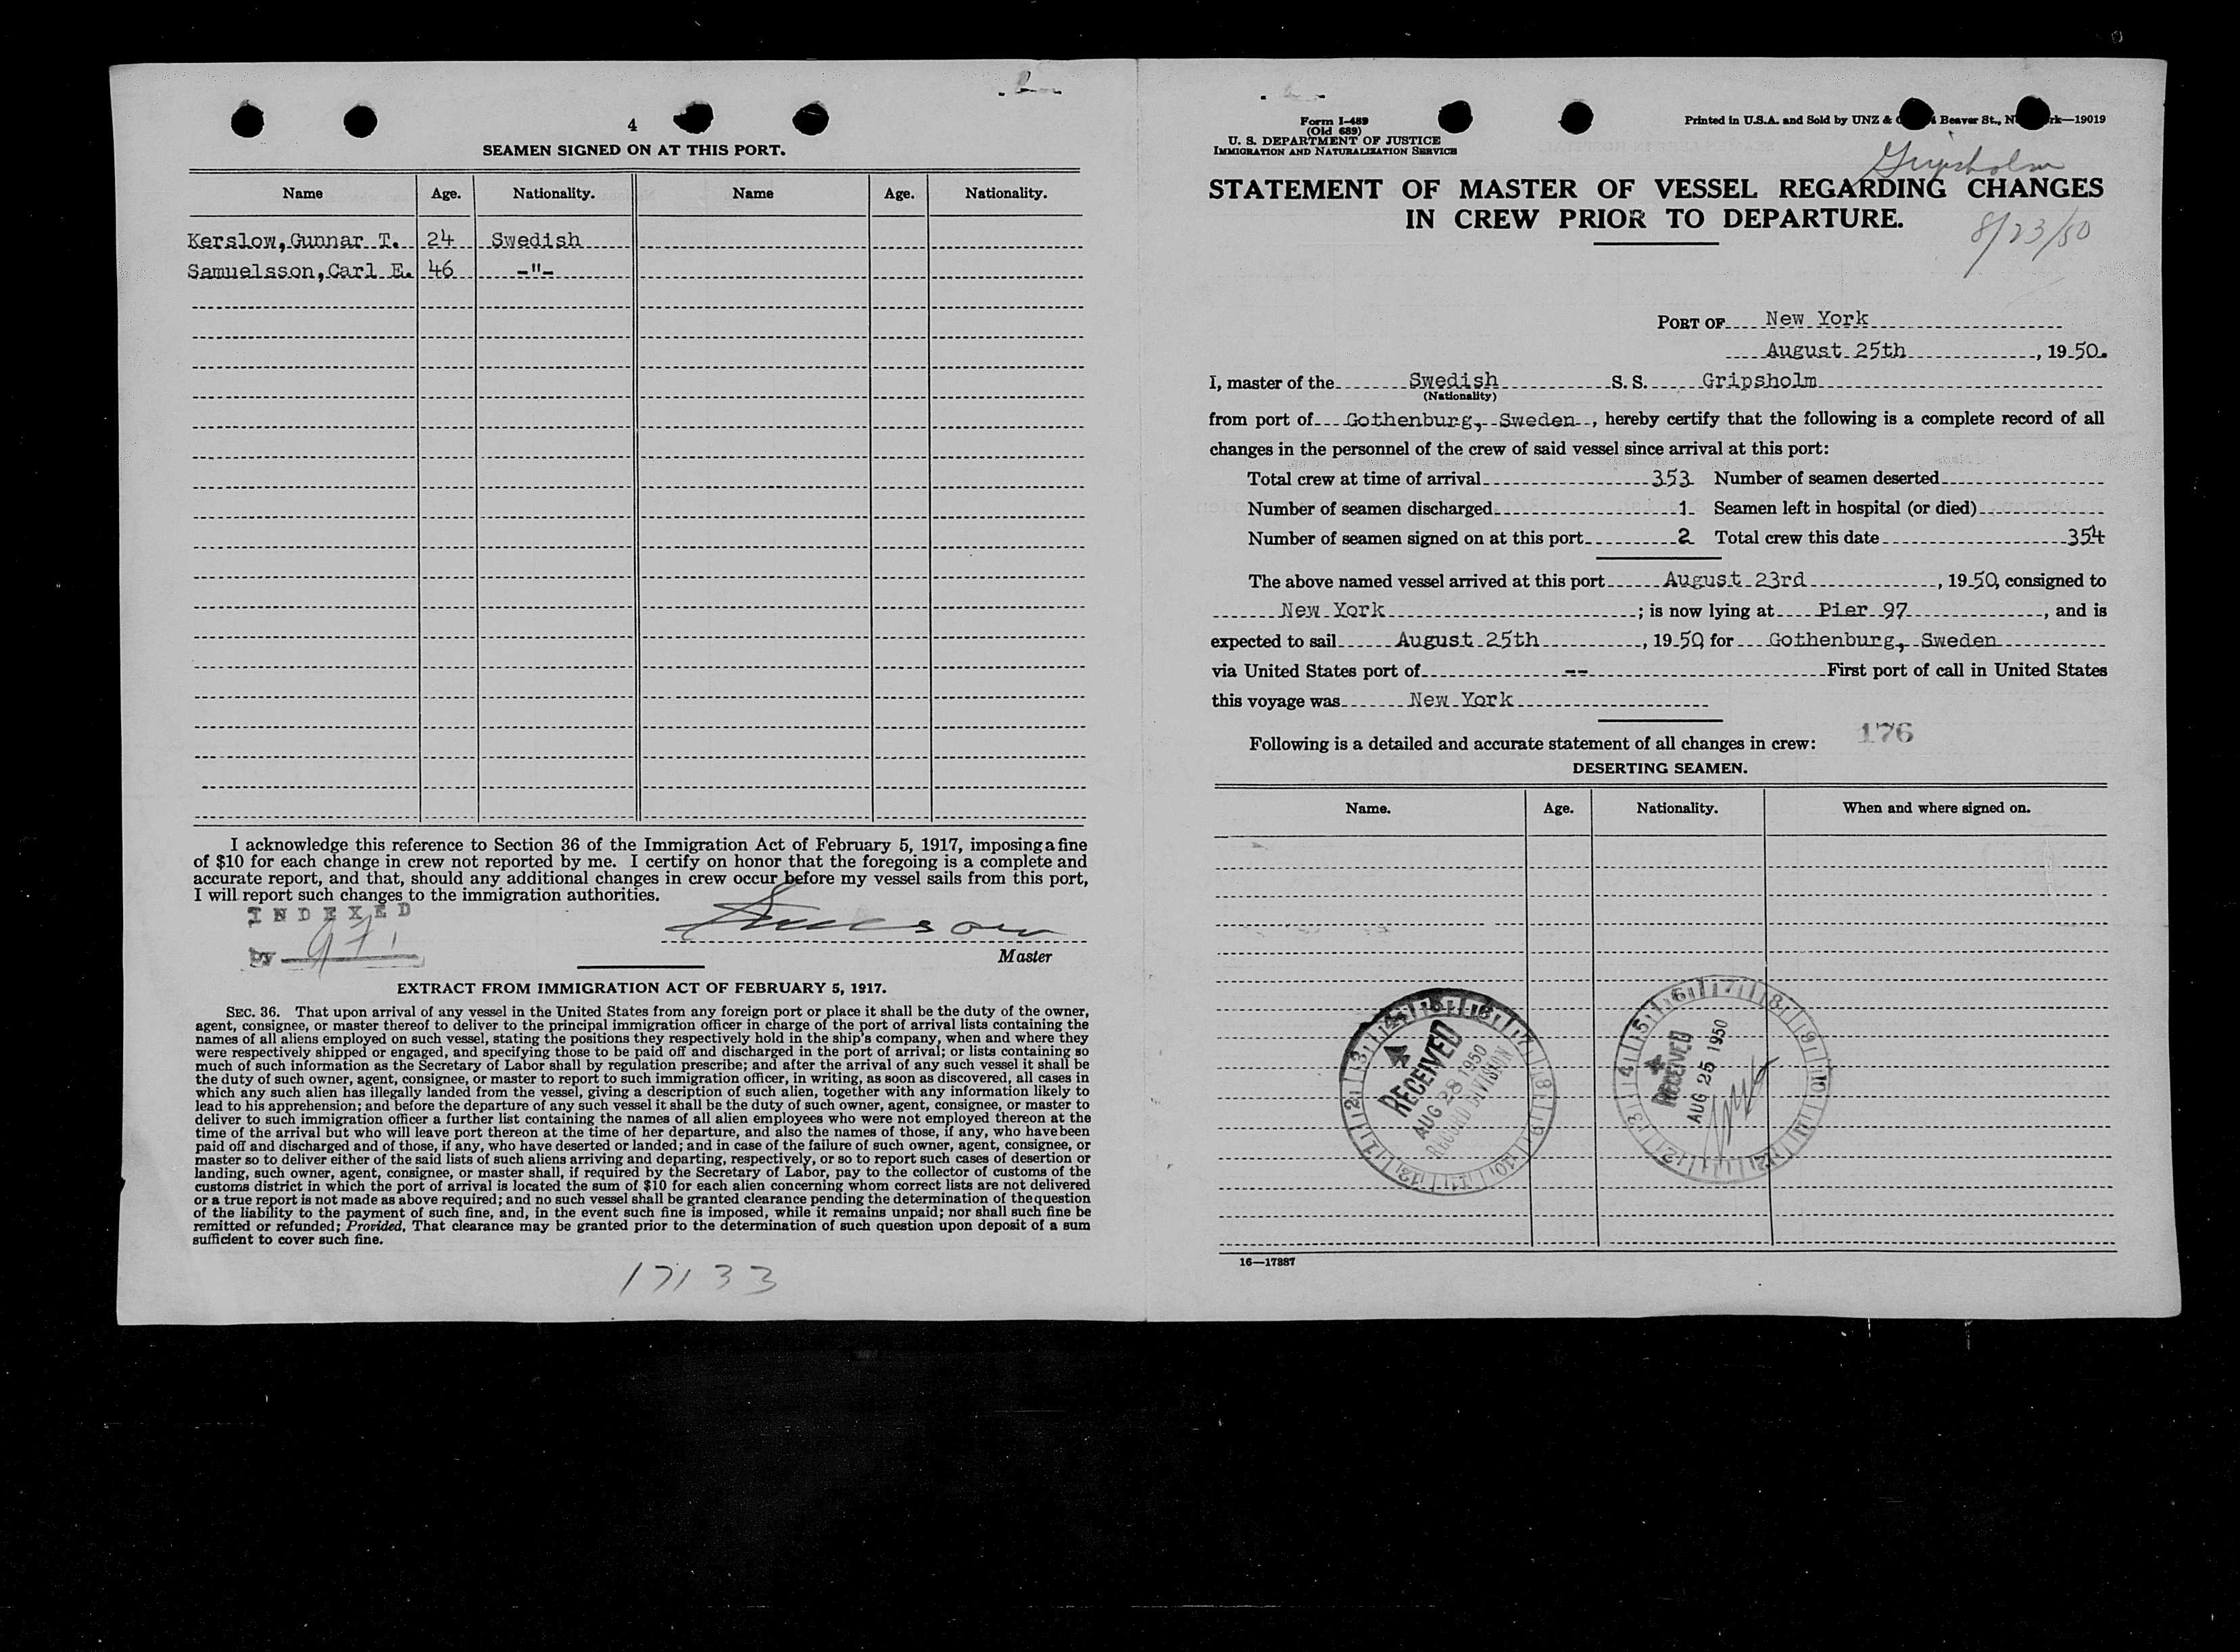 4
SEAMEN SIGNED ON AT THIS PORT.
Name Age. Nationality. Name Age. Nationality.
Kerslow, Gunnar T. 24 Swedish
Samuelsson, Carl E. 46 -"-
I acknowledge this reference to Section 36 of the Immigration Act of February 5, 1917, imposing a fine
of $10 for each change in crew not reported by me. I certify on honor that the foregoing is a complete and
accurate report, and that, should any additional changes in crew occur before my vessel sails from this port,
I will report such changes to the immigration authorities.
INDEXED
by
Master
EXTRACT FROM IMMIGRATION ACT OF FEBRUARY 5, 1917.
SEC. 36. That upon arrival of any vessel in the United States from any foreign port or place it shall be the duty of the owner,
agent, consignee, or master thereof to deliver to the principal immigration officer in charge of the port of arrival lists containing the
names of all aliens employed on such vessel, stating the positions they respectively hold in the ship's company, when and where they
were respectively shipped or engaged, and specifying those to be paid off and discharged in the port of arrival; or lists containing so
much of such information as the Secretary of Labor shall by regulation prescribe; and after the arrival of any such vessel it shall be
the duty of such owner, agent, consignee, or master to report to such immigration officer, in writing, as soon as discovered, all cases in
which any such alien has illegally landed from the vessel, giving a description of such alien, together with any information likely to
lead to his apprehension; and before the departure of any such vessel it shall be the duty of such owner, agent, consignee, or master to
deliver to such immigration officer a further list containing the names of all alien employees who were not employed thereon at the
time of the arrival but who will leave port thereon at the time of her departure, and also the names of those, if any, who have been
paid off and discharged and of those, if any, who have deserted or landed; and in case of the failure of such owner, agent, consignee, or
master so to deliver either of the said lists of such aliens arriving and departing, respectively, or so to report such cases of desertion or
landing, such owner, agent, consignee, or master shall, if required by the Secretary of Labor, pay to the collector of customs of the
customs district in which the port of arrival is located the sum of $10 for each alien concerning whom correct lists are not delivered
or a true report is not made as above required; and no such vessel shall be granted clearance pending the determination of the question
of the liability to the payment of such fine, and, in the event such fine is imposed, while it remains unpaid; nor shall such fine be
remitted or refunded; Provided, That clearance may be granted prior to the determination of such question upon deposit of a sum
sufficient to cover such fine.
17133
Form I-489
(Old 689)
U. S. DEPARTMENT OF JUSTICE
IMMIGRATION AND NATURALIZATION SERVICE
Printed in U.S.A. and Sold by UNZ & Beaver St., 19019
Gripsholm
STATEMENT OF MASTER OF VESSEL REGARDING CHANGES
IN CREW PRIOR TO DEPARTURE.
8/23/50
PORT OF New York
August 25th, 1950.
I, master of the Swedish S. S. Gripsholm
(Nationality)
from port of Gothenburg, Sweden, hereby certify that the following is a complete record of all
changes in the personnel of the crew of said vessel since arrival at this port:
Total crew at time of arrival 353 Number of seamen deserted
Number of seamen discharged 1 Seamen left in hospital (or died)
Number of seamen signed on at this port 2 Total crew this date 354
The above named vessel arrived at this port August 23rd, 1950, consigned to
New York; is now lying at Pier 97, and is
expected to sail August 25th, 1950, for Gothenburg, Sweden
via United States port of -- First port of call in United States
this voyage was New York
176
Following is a detailed and accurate statement of all changes in crew:
DESERTING SEAMEN.
Name. Age. Nationality. When and where signed on.
RECEIVED
AUG 28 1950
RECORD DIVISION
RECEIVED
AUG 25 1950
16—17887